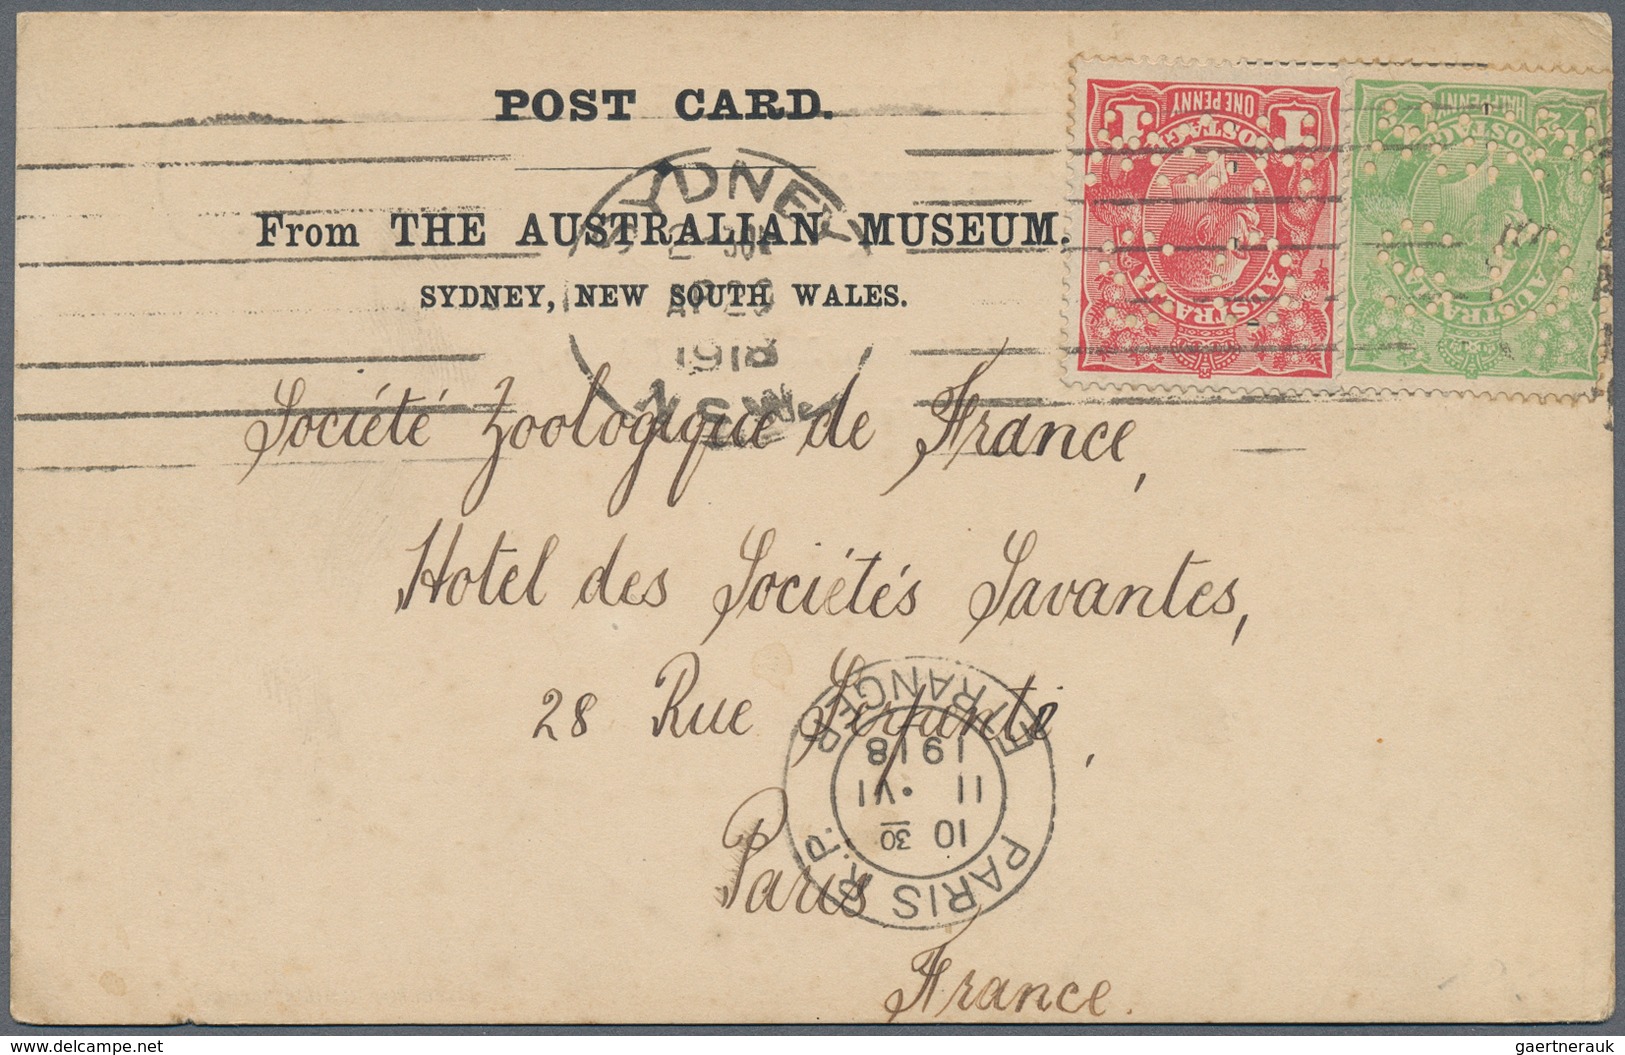 POST CARD.
From THE AUSTRALIAN MUSEUM.
SYDNEY, NEW SOUTH WALES.
ONE PENNY
POSTAGE
AUSTRALIA
HALFPENNY
POSTAGE
AUSTRALIA
SYDNEY
1918
N.S.W.
Société Zoologique de France,
Hotel des Sociétés Savantes,
28 Rue Serpente,
Paris
France.
PARIS R.P.
ETRANGER
10 30
11 • VI
1918
gaertnerauk
delcampe.com